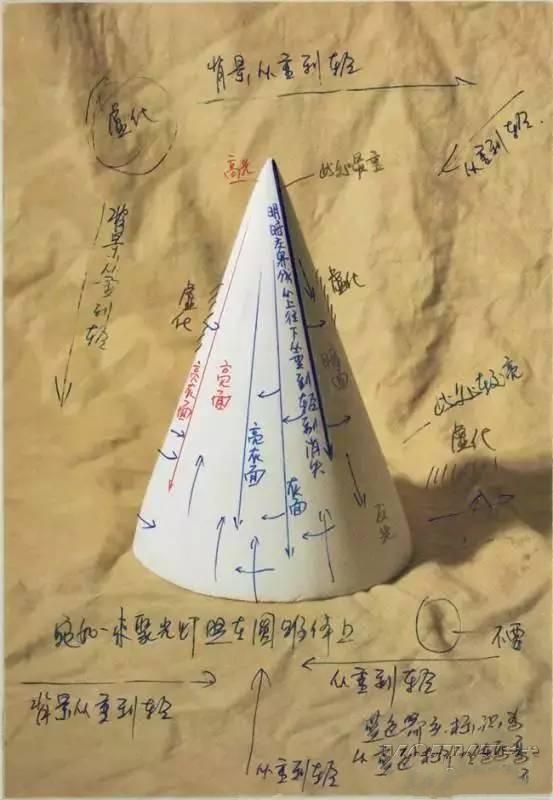 背景从重到轻
虚化
从重到轻.
高光
此处最重
背景从重到轻
虚化
虚化
明暗交界线从上往下从重到轻到消失
暗面
亮灰面
亮面
亮灰面
灰面
反光
此处较亮
虚化
宛如一束聚光灯照在圆锥体上
不要
从重到轻
背景从重到轻
从重到轻